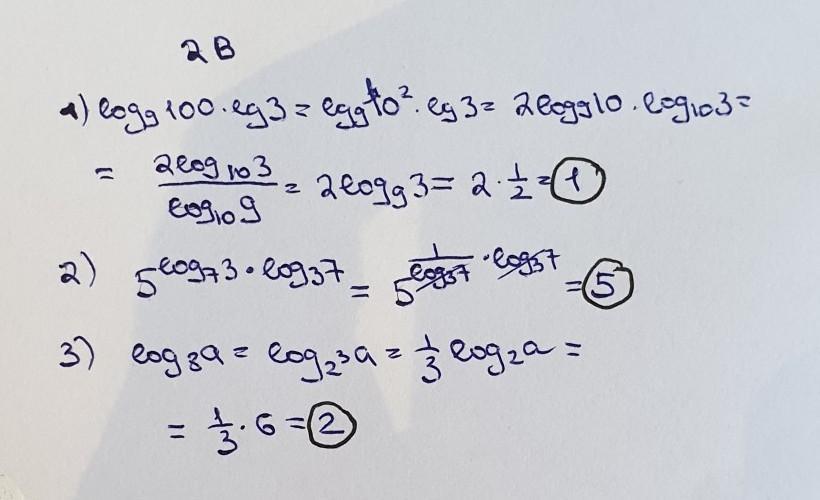 2В
1) log₉100·lg3 = lg₉10²·lg3 = 2log₉10·log₁₀3 =
= 2log₁₀3/log₁₀9 = 2log₉3 = 2·1/2 = 1
2) 5^(log₇3·log₃7) = 5^(1/log₃7·log₃7) = 5
3) log₈a = log₂³a = 1/3 log₂a =
= 1/3·6 = 2